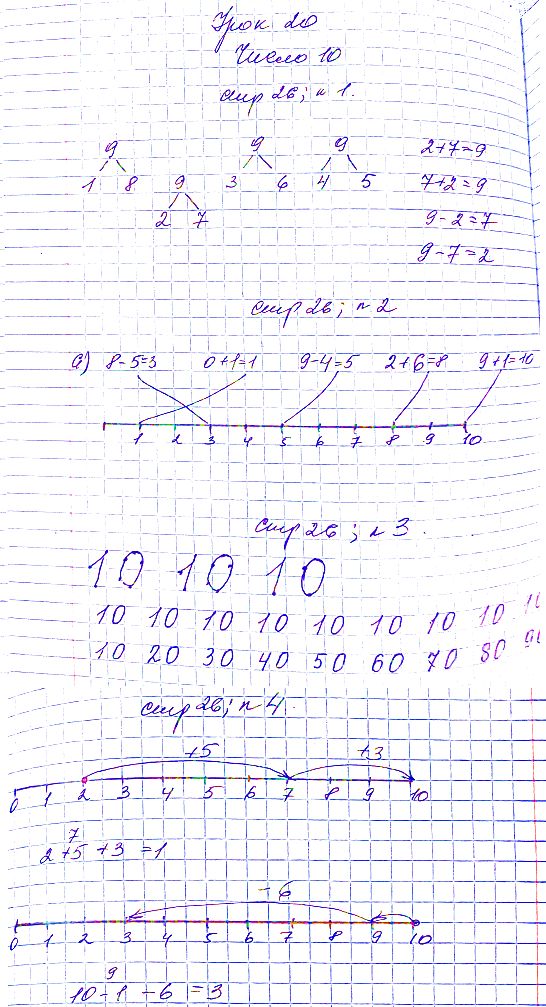 Урок 20
Число 10
стр 26; n 1.
9 9 9 2+7=9
1 8 9 3 6 4 5 7+2=9
2 7 9-2=7
9-7=2
стр 26; n 2
а) 8-5=3 0+1=1 9-4=5 2+6=8 9+1=10
1 2 3 4 5 6 7 8 9 10
стр 26; n 3.
10 10 10
10 10 10 10 10 10 10 10 10
10 20 30 40 50 60 70 80 90
стр 26; n 4.
+5 +3
0 1 2 3 4 5 6 7 8 9 10
7
2+5+3=1
-6
0 1 2 3 4 5 6 7 8 9 10
9
10-1-6=3